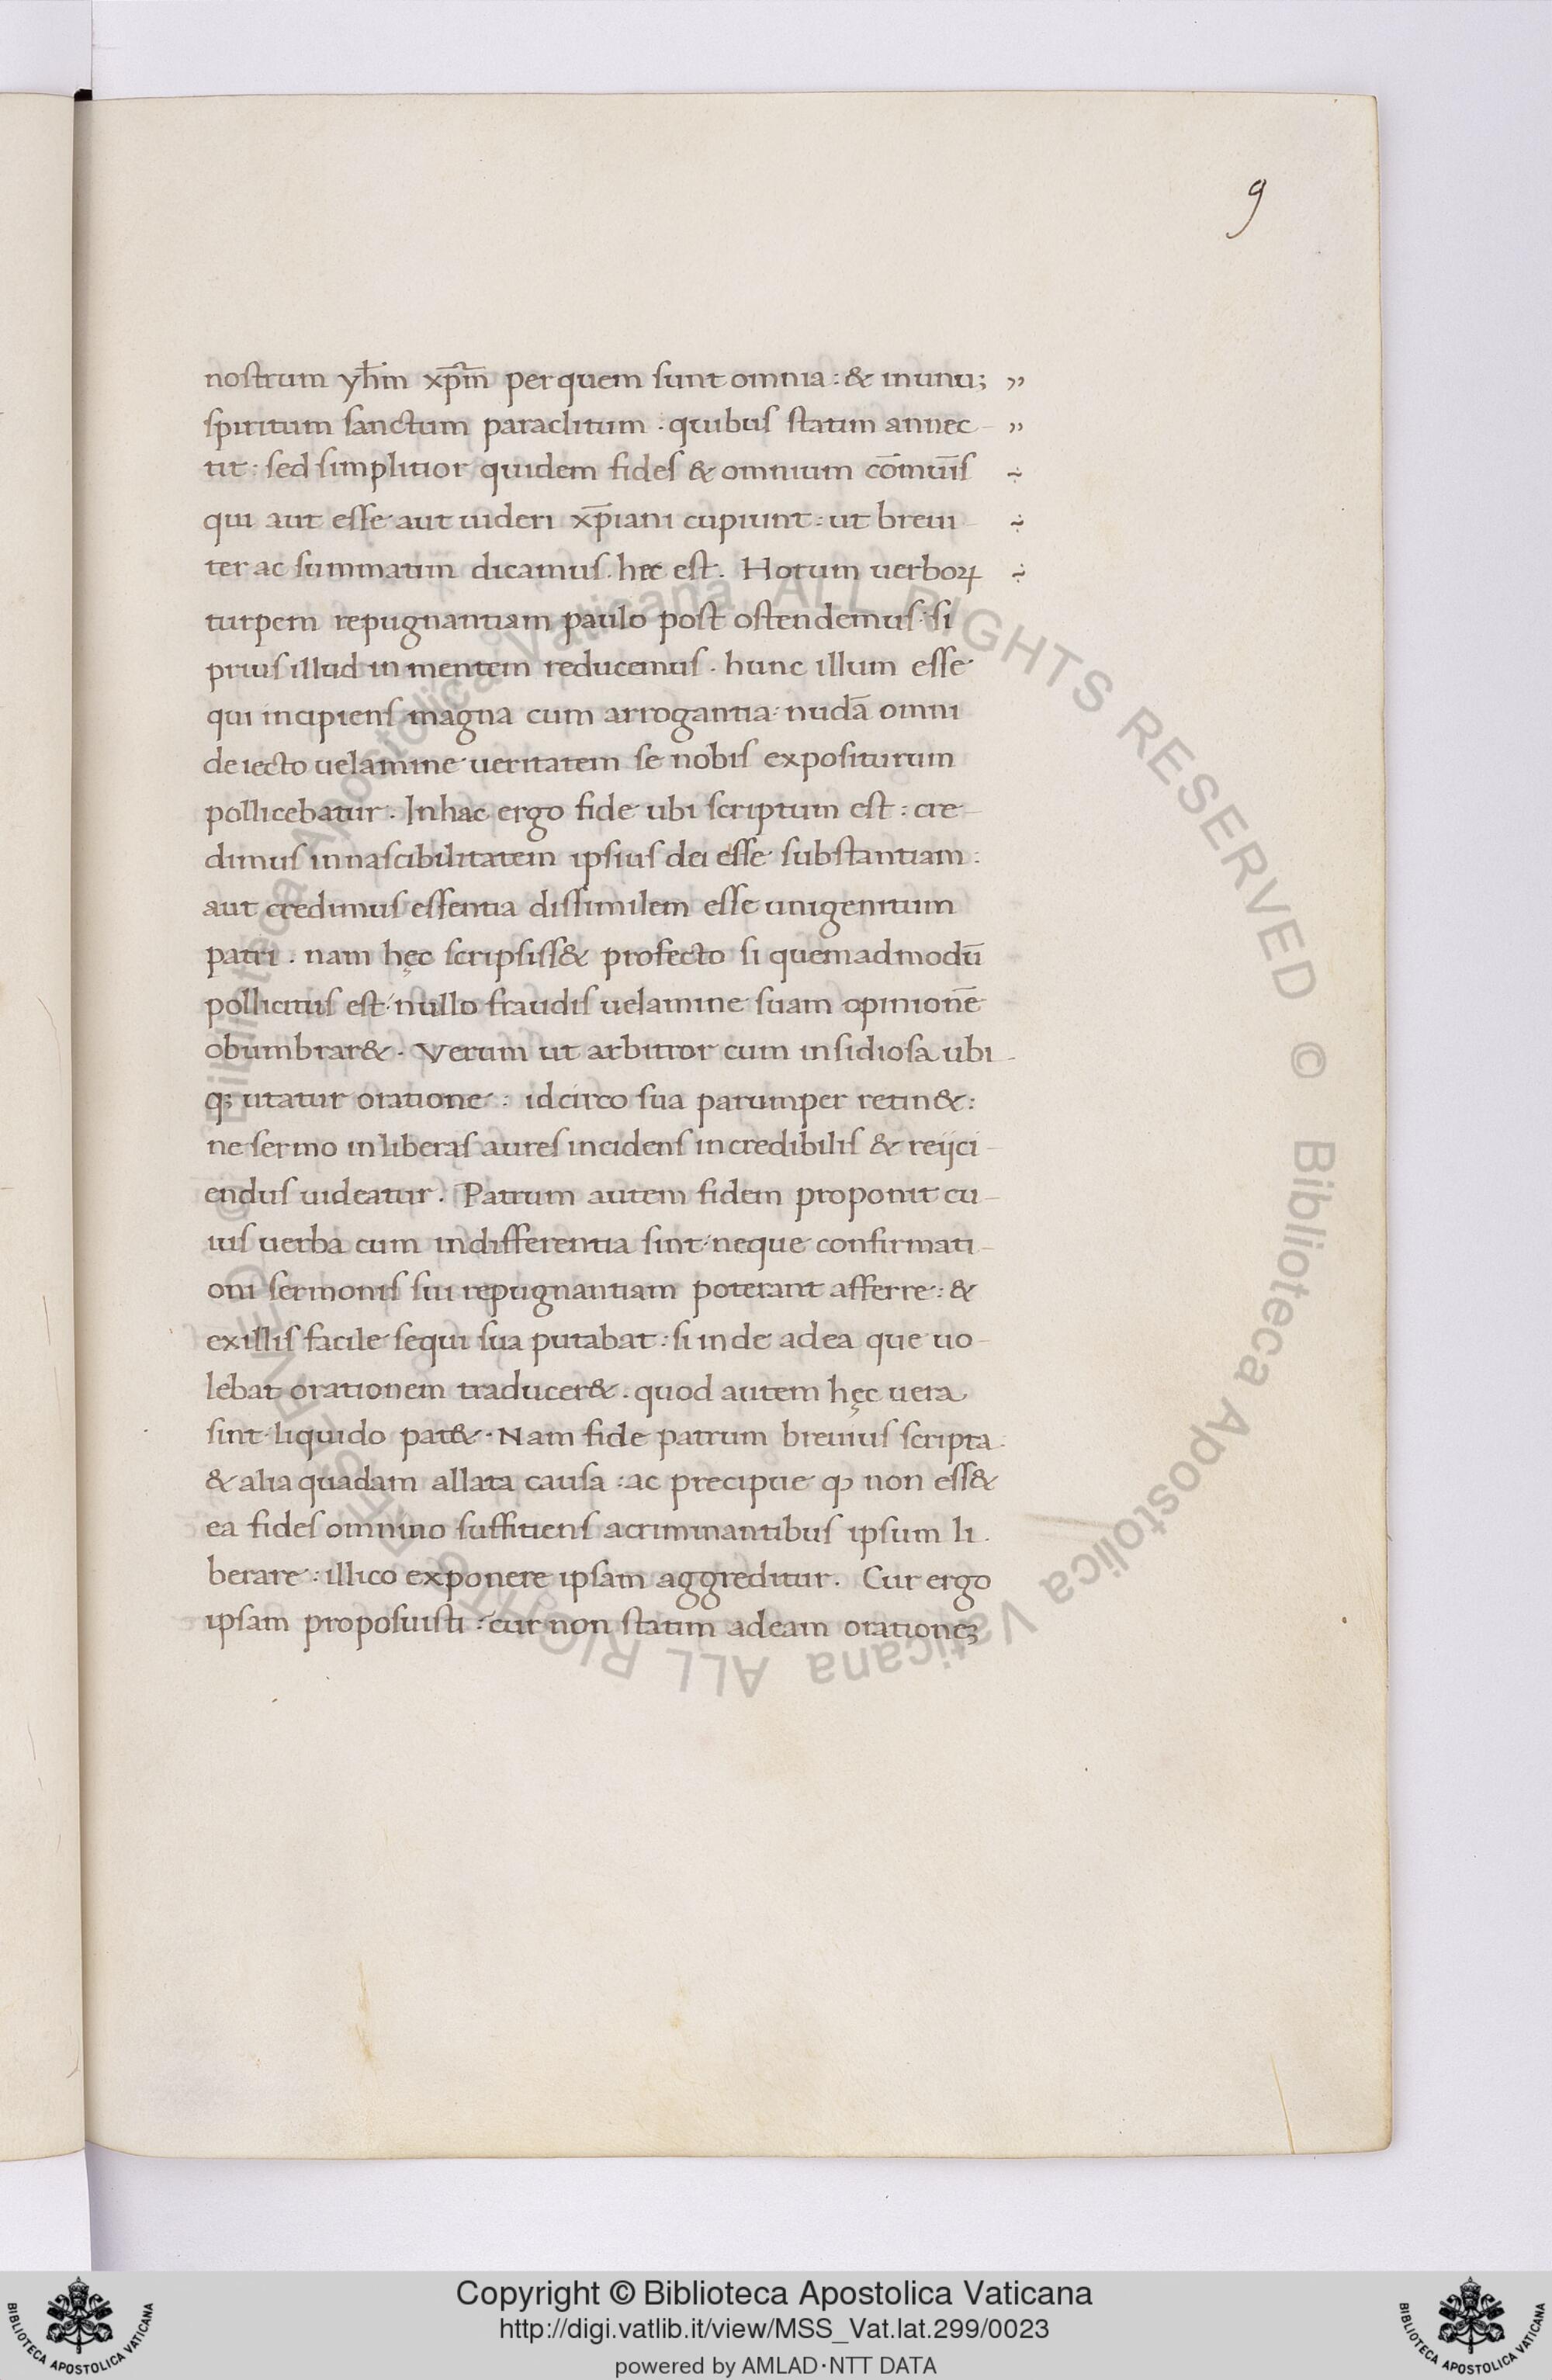 9
nostrum yh̄m xp̄m̄ per quem sunt omnia : & in unu; ,,
spiritum sanctum paraclitum . quibus statim annec- ,,
tit : sed simplitior quidem fides & omnium cōmuīs ÷
qui aut esse aut uideri xp̄iani cupiunt : ut breui- ÷
ter ac summatim dicamus . hec est . Horum uerboꝝ ÷
turpem repugnantiam paulo post ostendemus · si
prius illud in mentem reducemus . hunc illum esse
qui incipiens magna cum arrogantia · nudā omni
deiecto uelamine ueritatem se nobis expositurum
pollicebatur . In hac ergo fide ubi scriptum est : cre-
dimus innascibilitatem ipsius dei esse substantiam :
aut credimus essentia dissimilem esse unigenitum
patri . nam hęc scripsiss& profecto si quemadmodū
pollicitus est · nullo fraudis uelamine suam opinionē
obumbrar& . Verum ut arbitror cum insidiosa ubi-
qꝫ utatur oratione : idcirco sua parumper retin& :
ne sermo in liberas aures incidens incredibilis & reijci-
endus uideatur . Patrum autem fidem proponit cu-
ius uerba cum indifferentia sint · neque confirmati-
oni sermonis sui repugnantiam poterant afferre : &
ex illis facile sequi sua putabat : si inde ad ea que uo-
lebat orationem traducer& . quod autem hęc uera
sint · liquido pat& · Nam fide patrum breuius scripta
& alia quadam allata causa : ac precipue ꝙ non ess&
ea fides omnino suffitiens acriminantibus ipsum li-
berare : illico exponere ipsam aggreditur . Cur ergo
ipsam proposuisti : cur non statim ad eam orationeꝫ
© Biblioteca Apostolica Vaticana ALL RIGHTS RESERVED © Biblioteca Apostolica Vaticana ALL RIGHTS RESERVED
Copyright © Biblioteca Apostolica Vaticana
http://digi.vatlib.it/view/MSS_Vat.lat.299/0023
powered by AMLAD·NTT DATA
BIBLIOTECA APOSTOLICA VATICANA
BIBLIOTECA APOSTOLICA VATICANA